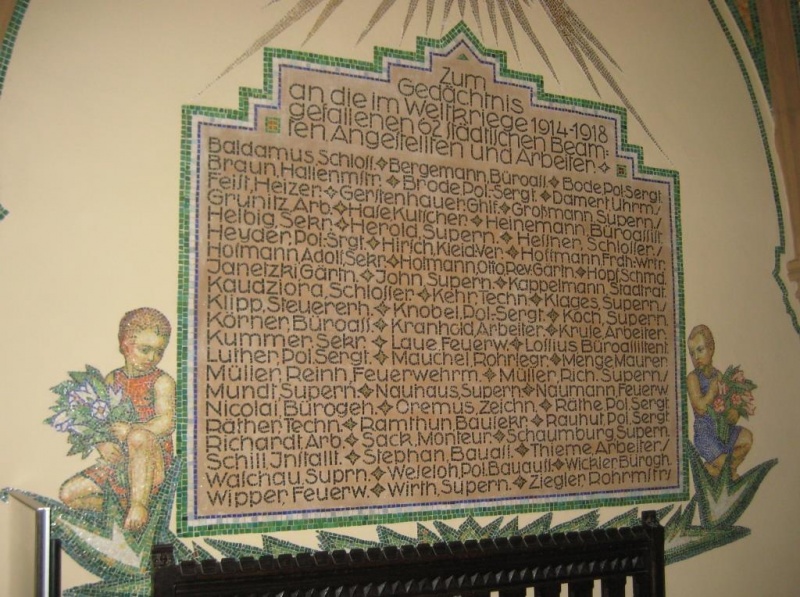 Zum
Gedächtnis
an die im Weltkriege 1914-1918
gefallenen 62 städtischen Beam-
ten Angestellten und Arbeiter.
Baldamus, Schloss. Bergemann, Büroass. Bode Pol. Sergt.
Braun, Hallenmstr. Brode Pol. Sergt. Damert, Uhrm/
Feist, Heizer. Gerstenhauer, Ghlf. Großmann, Supern/
Grunitz, Arb. Hase Kutscher. Heinemann, Büroassist
Helbig, Sekr. Herold, Supern. Hellner, Schlosser/
Heyder, Pol. Srgt. Hirsch, Kleid. Ver. Hoffmann
Hofmann Adolf, Sekr. Hofmann, Otto Rev. Gärtn. Hopf, Schmd.
Janeizki Gärtn. John, Supern. Kappelmann, Stadtrat
Kaudziora, Schlosser. Kehr, Techn. Klages, Supern/
Klipp, Steuererh. Knobel, Pol. Sergt. Koch, Supern.
Körner, Büroass. Kranhold, Arbeiter. Kruse Arbeiter.
Kummer, Sekr. Laue Feuerw. Lossius Büroassistent
Luther, Pol. Sergt. Mauchel, Rohrlegr. Menge Maurer
Müller, Reinh, Feuerwehrm. Müller, Rich. Supern/
Mundt, Supern. Nauhaus, Supern. Naumann, Feuerw
Nicolai, Bürogeh. Oremus, Zeichn. Räthe Pol. Sergt
Räther, Techn. Ramthun, Bausekr. Rauhut Pol. Sergt
Richardt Arb. Sack, Monteur. Schaumburg Supern.
Schill, Installt. Stephan, Bauass. Thieme, Arbeiter/
Walchau, Suprn. Weseloh, Pol. Bauauss. Wickler Bürogh.
Wipper, Feuerw. Wirth, Supern. Ziegler, Rohrmstr/